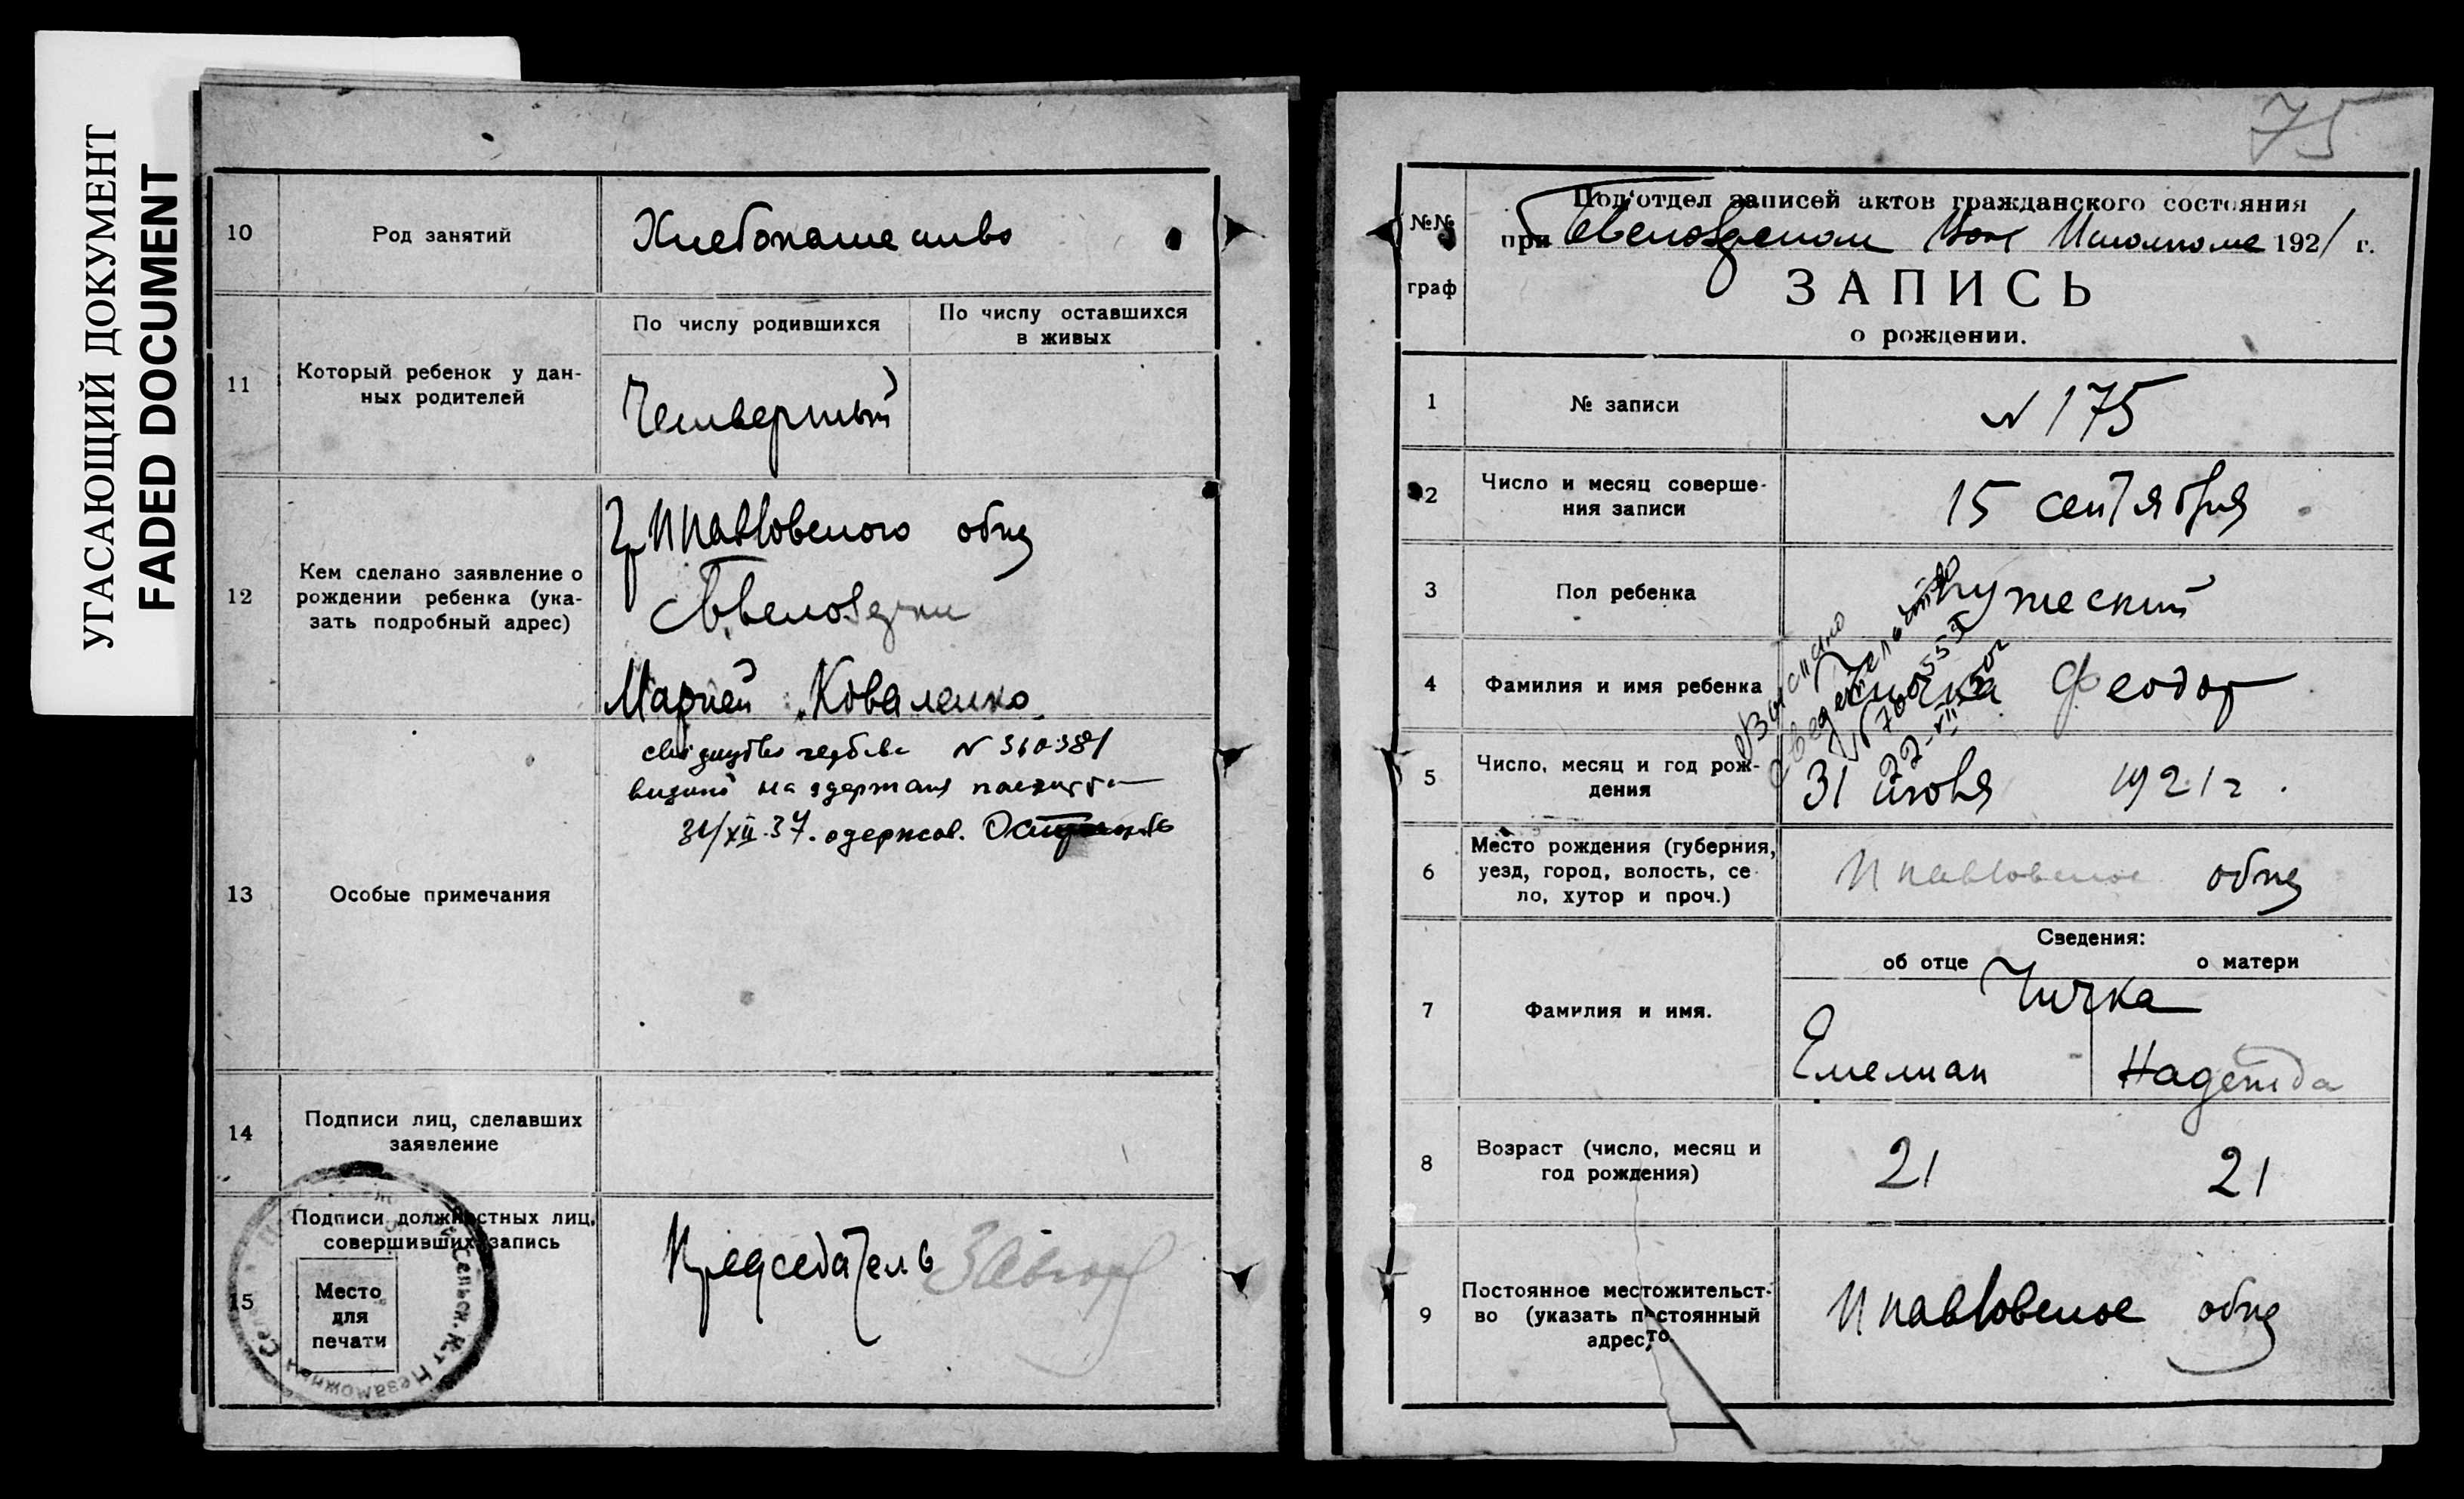 УГАСАЮЩИЙ ДОКУМЕНТ
FADED DOCUMENT
10
Род занятий
Хлебопашество
11
Который ребенок у дан-
ных родителей
По числу родившихся
По числу оставшихся
в живых
Четвертый
12
Кем сделано заявление о
рождении ребенка (ука-
зать подробный адрес)
Гр Ппавловского общ
Марией Коваленко
13
Особые примечания
N 310381
на одержання паспорта
31/XII.37. одержав.
14
Подписи лиц, сделавших
заявление
15
Подписи должностных лиц,
совершивших запись
Место
для
печати
Председатель
Сельск. К-т Незаможных
75
№№
граф
Под'отдел записей актов гражданского состояния
при Вол Исполкоме 1921 г.
ЗАПИСЬ
о рождении.
1
№ записи
N 175
2
Число и месяц соверше-
ния записи
15 сентября
3
Пол ребенка
Мужеский
4
Фамилия и имя ребенка
Чичка Феодор
Выписано
свидетельство
5
Число, месяц и год рож-
дения
31 июля 1921 г.
6
Место рождения (губерния,
уезд, город, волость, се-
ло, хутор и проч.)
Ппавловское общ
7
Фамилия и имя.
Сведения:
об отце
о матери
Чичка
Емелиан
Надежда
8
Возраст (число, месяц и
год рождения)
21
21
9
Постоянное местожительст-
во (указать постоянный
адрес)
Ппавловское общ